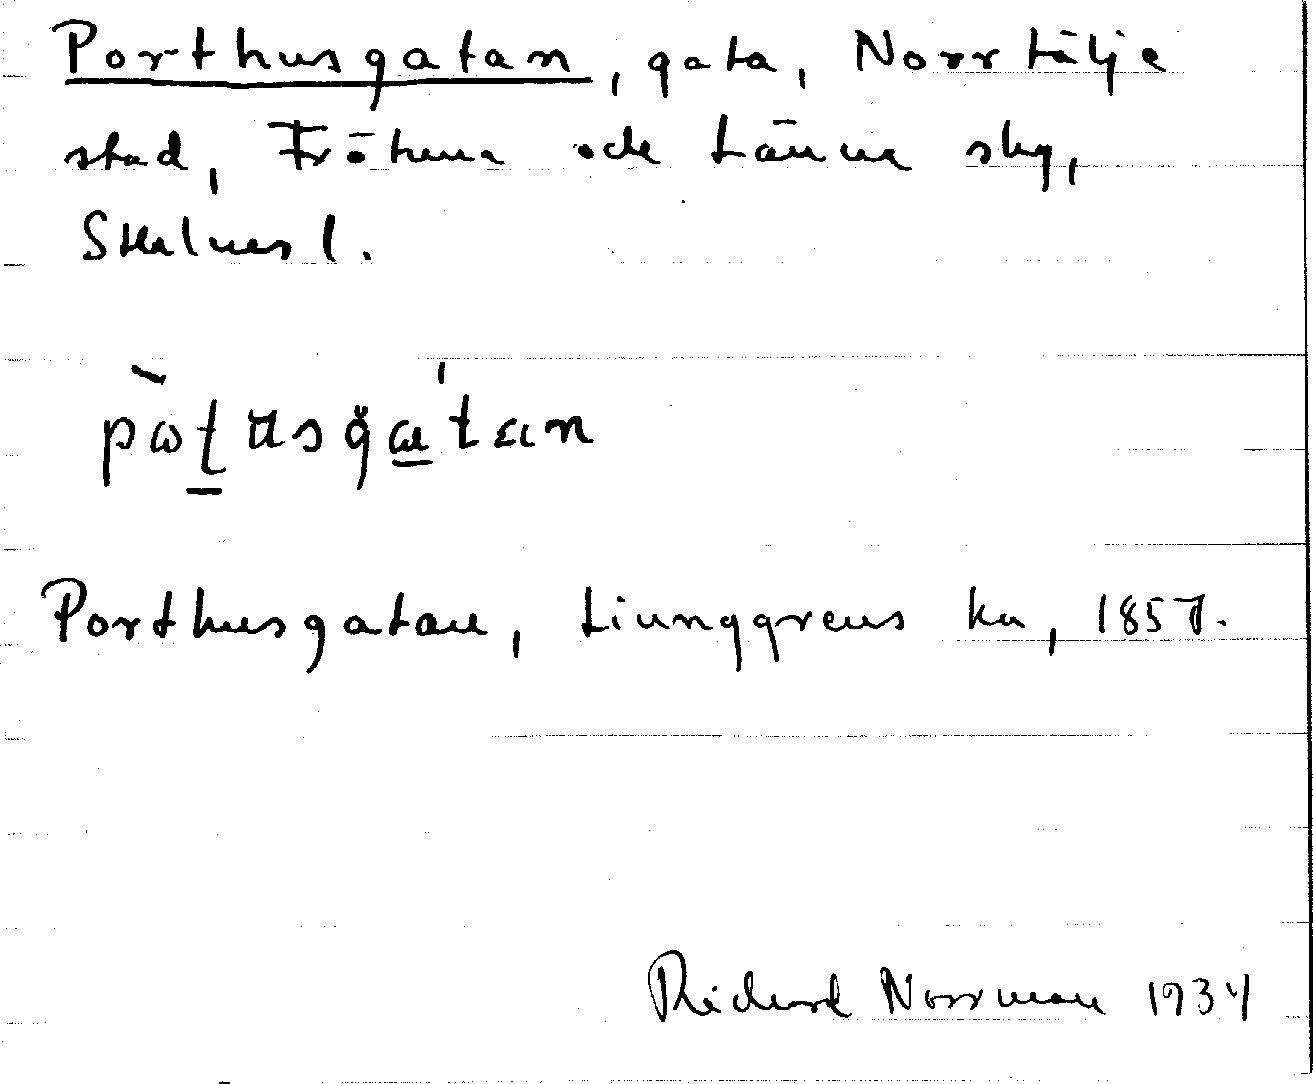 Porthusgatan, gata, Norrtälje
stad, Frötuna och Länna slg,
Sthlms l.
Porthusgatan, Liunggrens ka, 1857.
Richard Norrman 1934